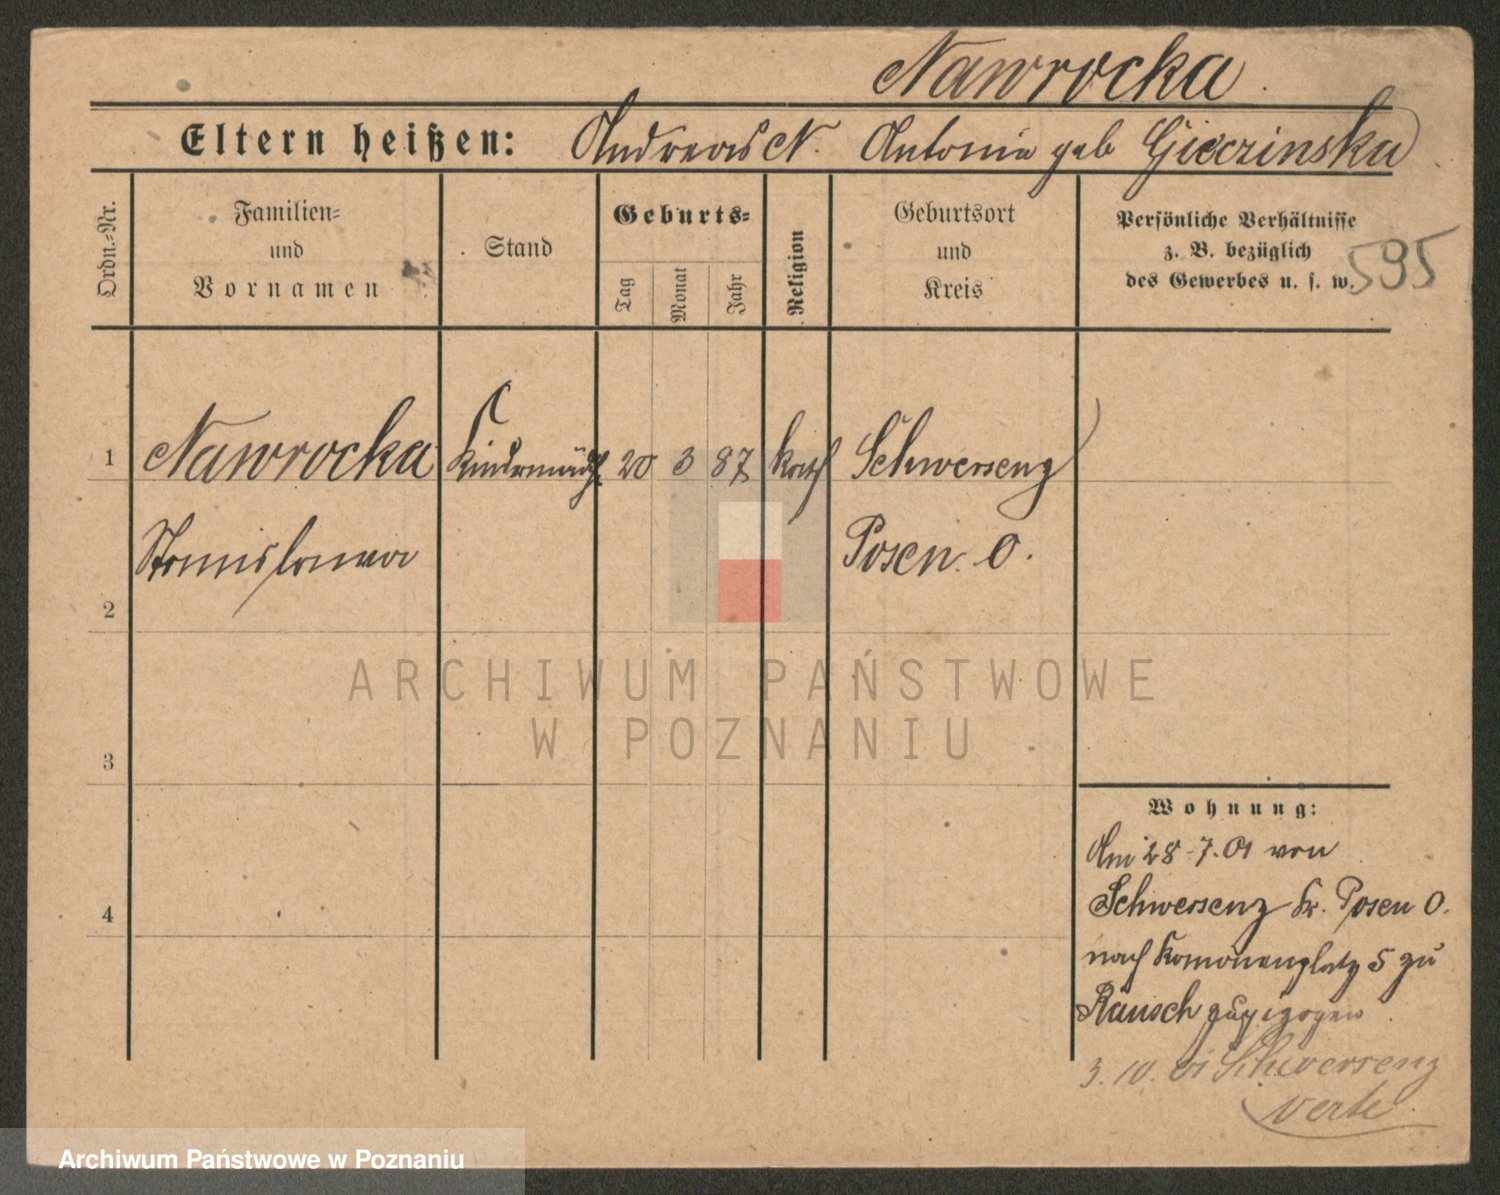 Nawrocka.
Eltern heißen: Andreas N. Antonia geb
Ordn.-Nr.
Familien-
und
Vornamen
Stand
Geburts-
Tag
Monat
Jahr
Religion
Geburtsort
und
Kreis
Persönliche Verhältnisse
z. B. bezüglich
des Gewerbes u. s. w.
595
1 Nawrocka Kindermädch 20 3 87 kath Schwersenz
Stanislawa Posen. O.
2
3
4
Wohnung:
Am 28.7.01 von
Schwersenz Kr. Posen O.
nach 5 zu
Rausch zugezogen
3. 10. 01 Schwersenz
verte.
ARCHIWUM PAŃSTWOWE
W POZNANIU
Archiwum Państwowe w Poznaniu